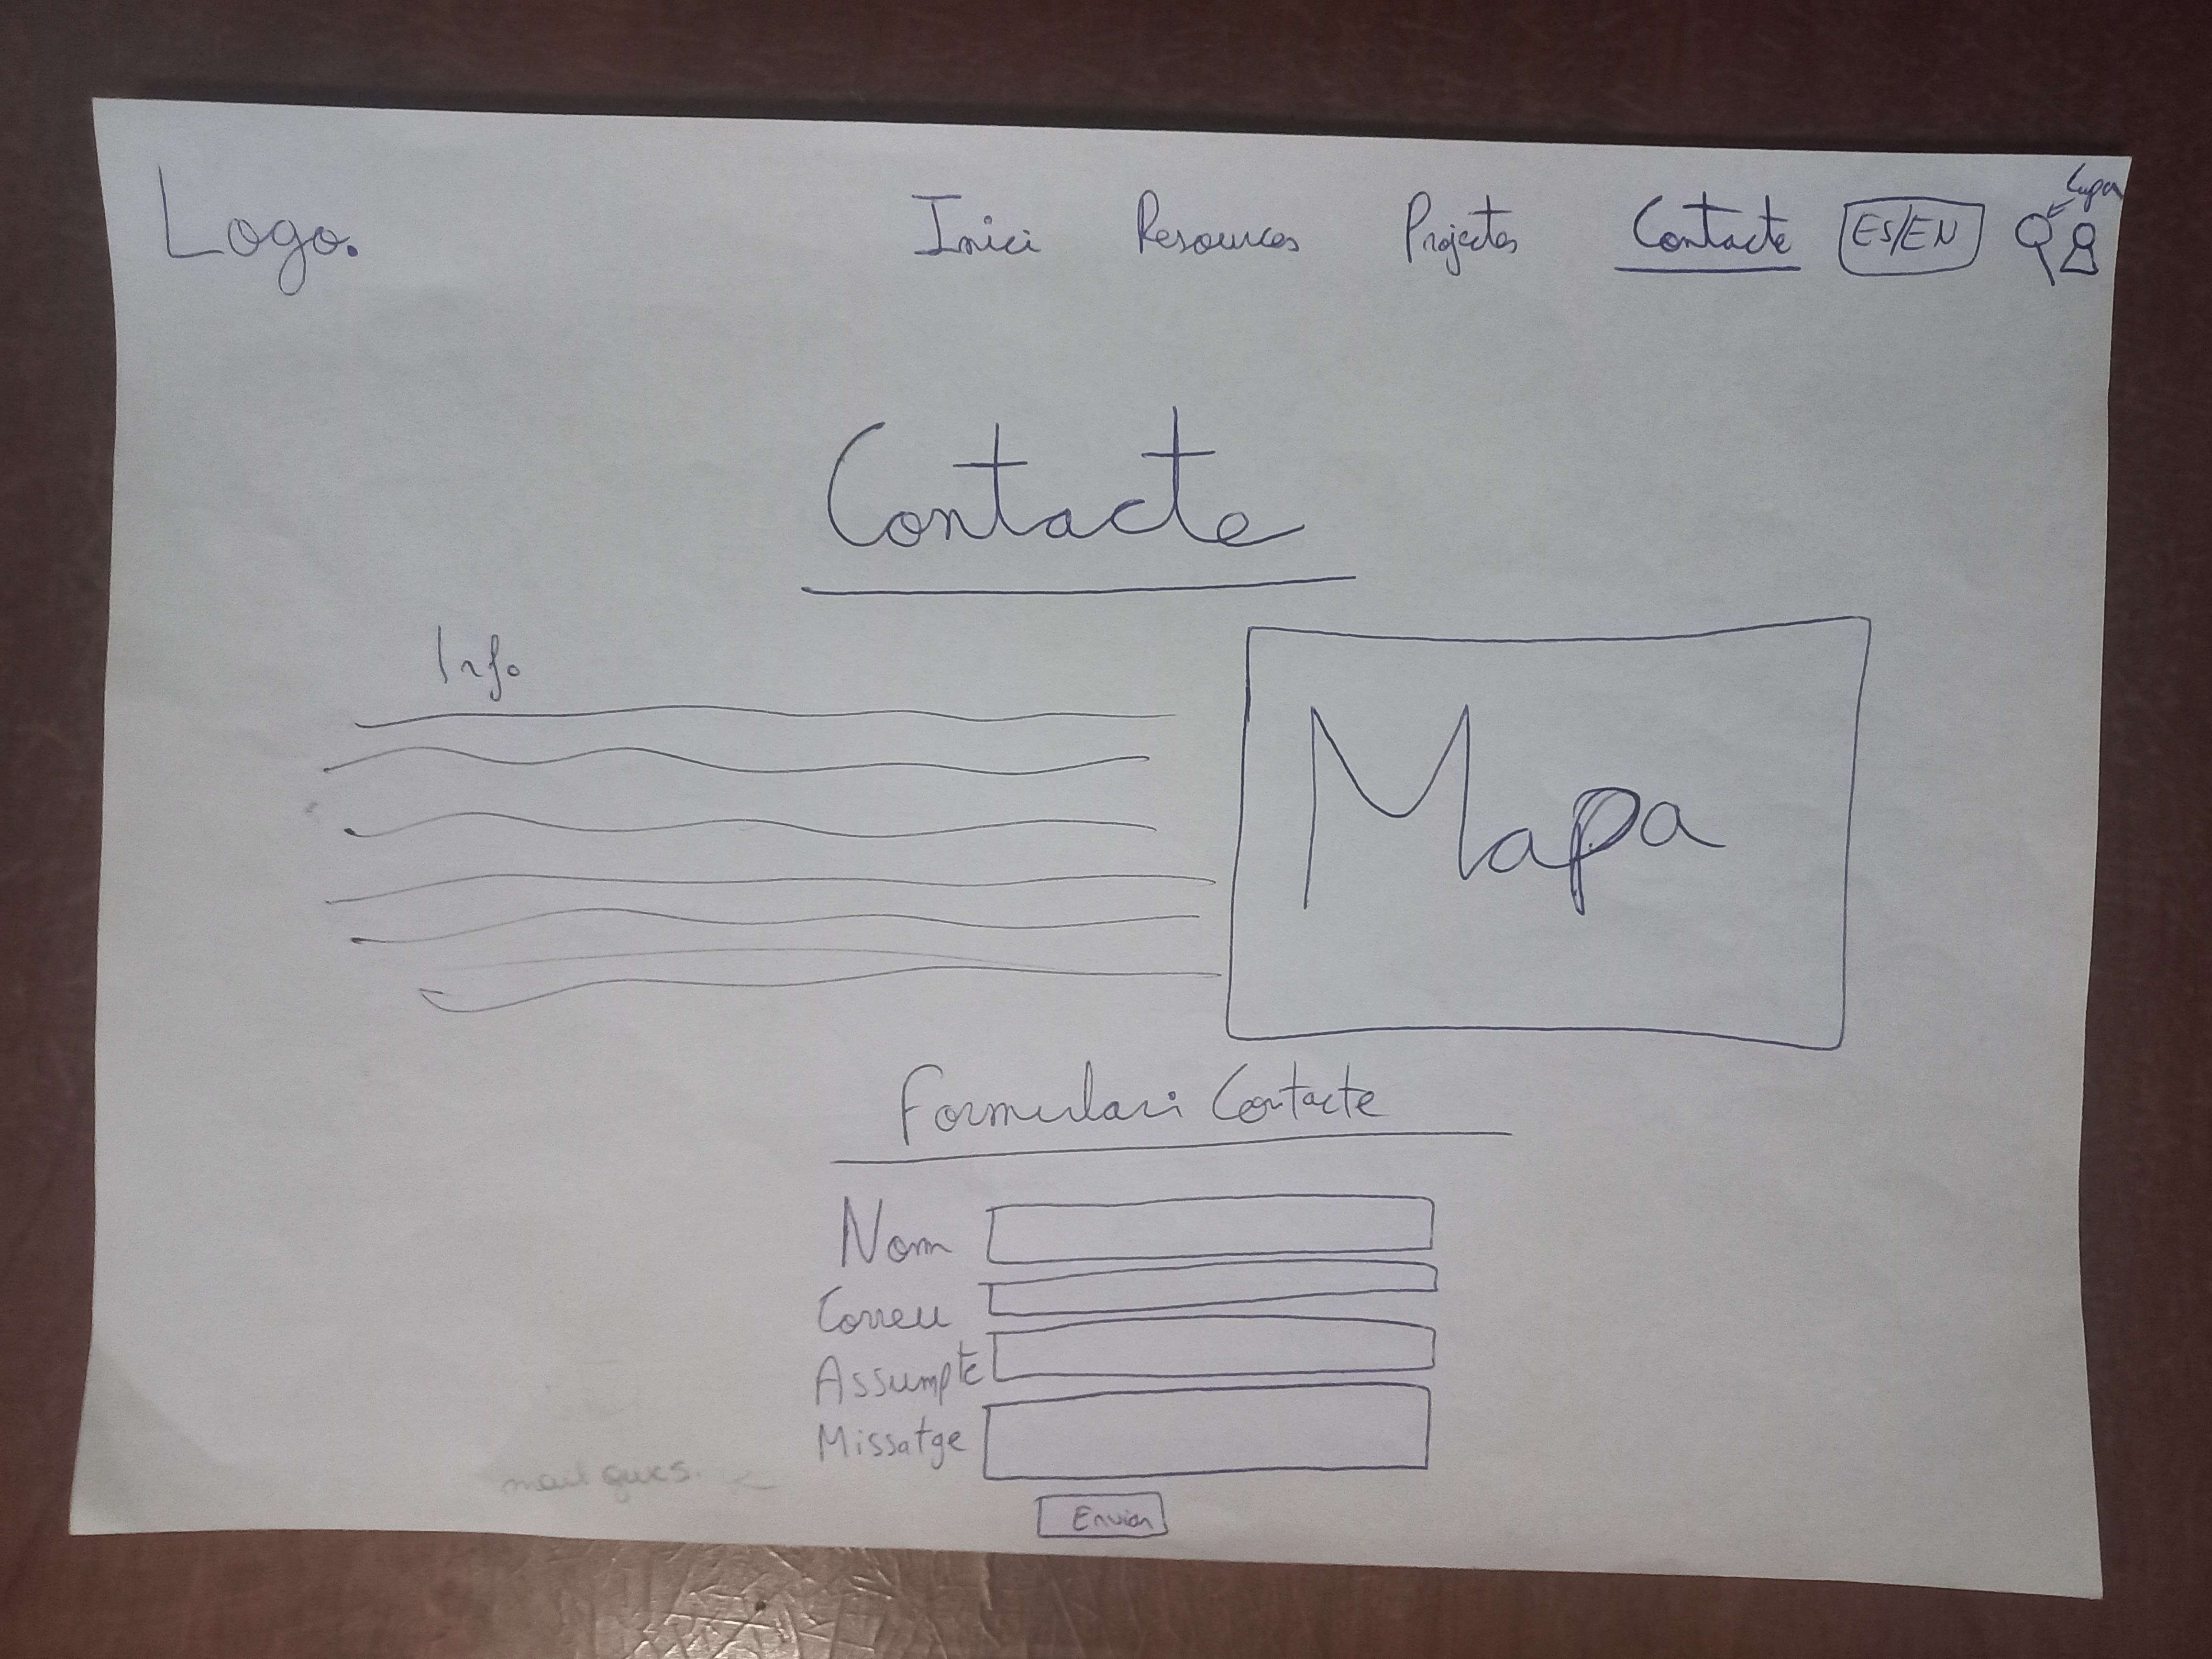 Logo. Inici Resources Projectes Contacte ES/EN
Lupa
Contacte
Info
Mapa
Formulari Contacte
Nom
Correu
Assumpte
Missatge
Enviar